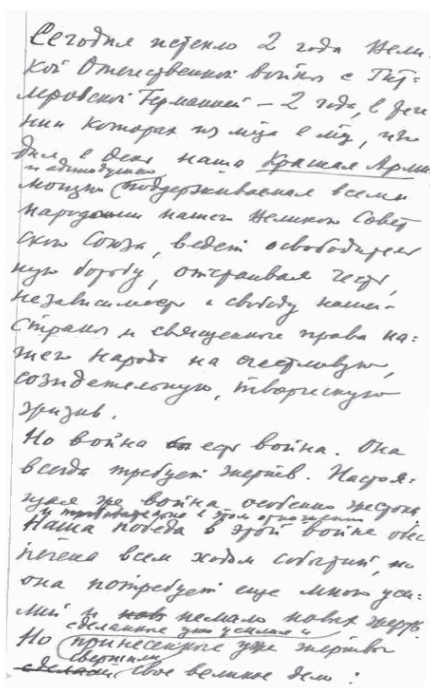 Сегодня истекло 2 года Вели-
кой Отечественной войны с Гит-
леровской Германией – 2 года, в тече-
нии которых из м-ца в м-ц, изо
дня в день наша Красная Армия
и единодушно
мощно поддерживаемая всеми
народами нашего Великого Совет
ского Союза, ведет освободитель
ную борьбу, отстаивая честь,
независимость и свободу нашей
страны и священные права на-
шего народа на счастливую,
созидательную, творческую
жизнь.
Но война есть война. Она
всегда требует жертв. Настоя-
щая же война особенно жестока
и требовательна в этом отношении
Наша победа в этой войне обес
печена всем ходом событий, но
она потребует еще много уси-
лий и немало новых жертв.
сделанные уже усилия и
Но принесенные уже жертвы
свершили
сделали свое великое дело: